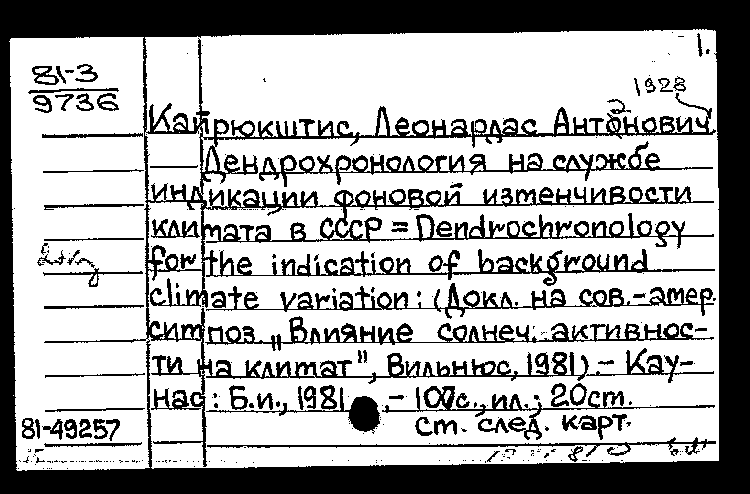 1.
81-3
9736
1928
Кайрюкштис, Леонардас Антонович.
Дендрохронология на службе
индикации фоновой изменчивости
климата в СССР = Dendrochronology
for the indication of background
climate variation: (Докл. на сов.-амер.
симпоз. „Влияние солнеч. активнос-
ти на климат", Вильнюс, 1981). - Кау-
нас: Б.и., 1981. - 107с., ил.; 20см.
81-49257
См. след. карт.